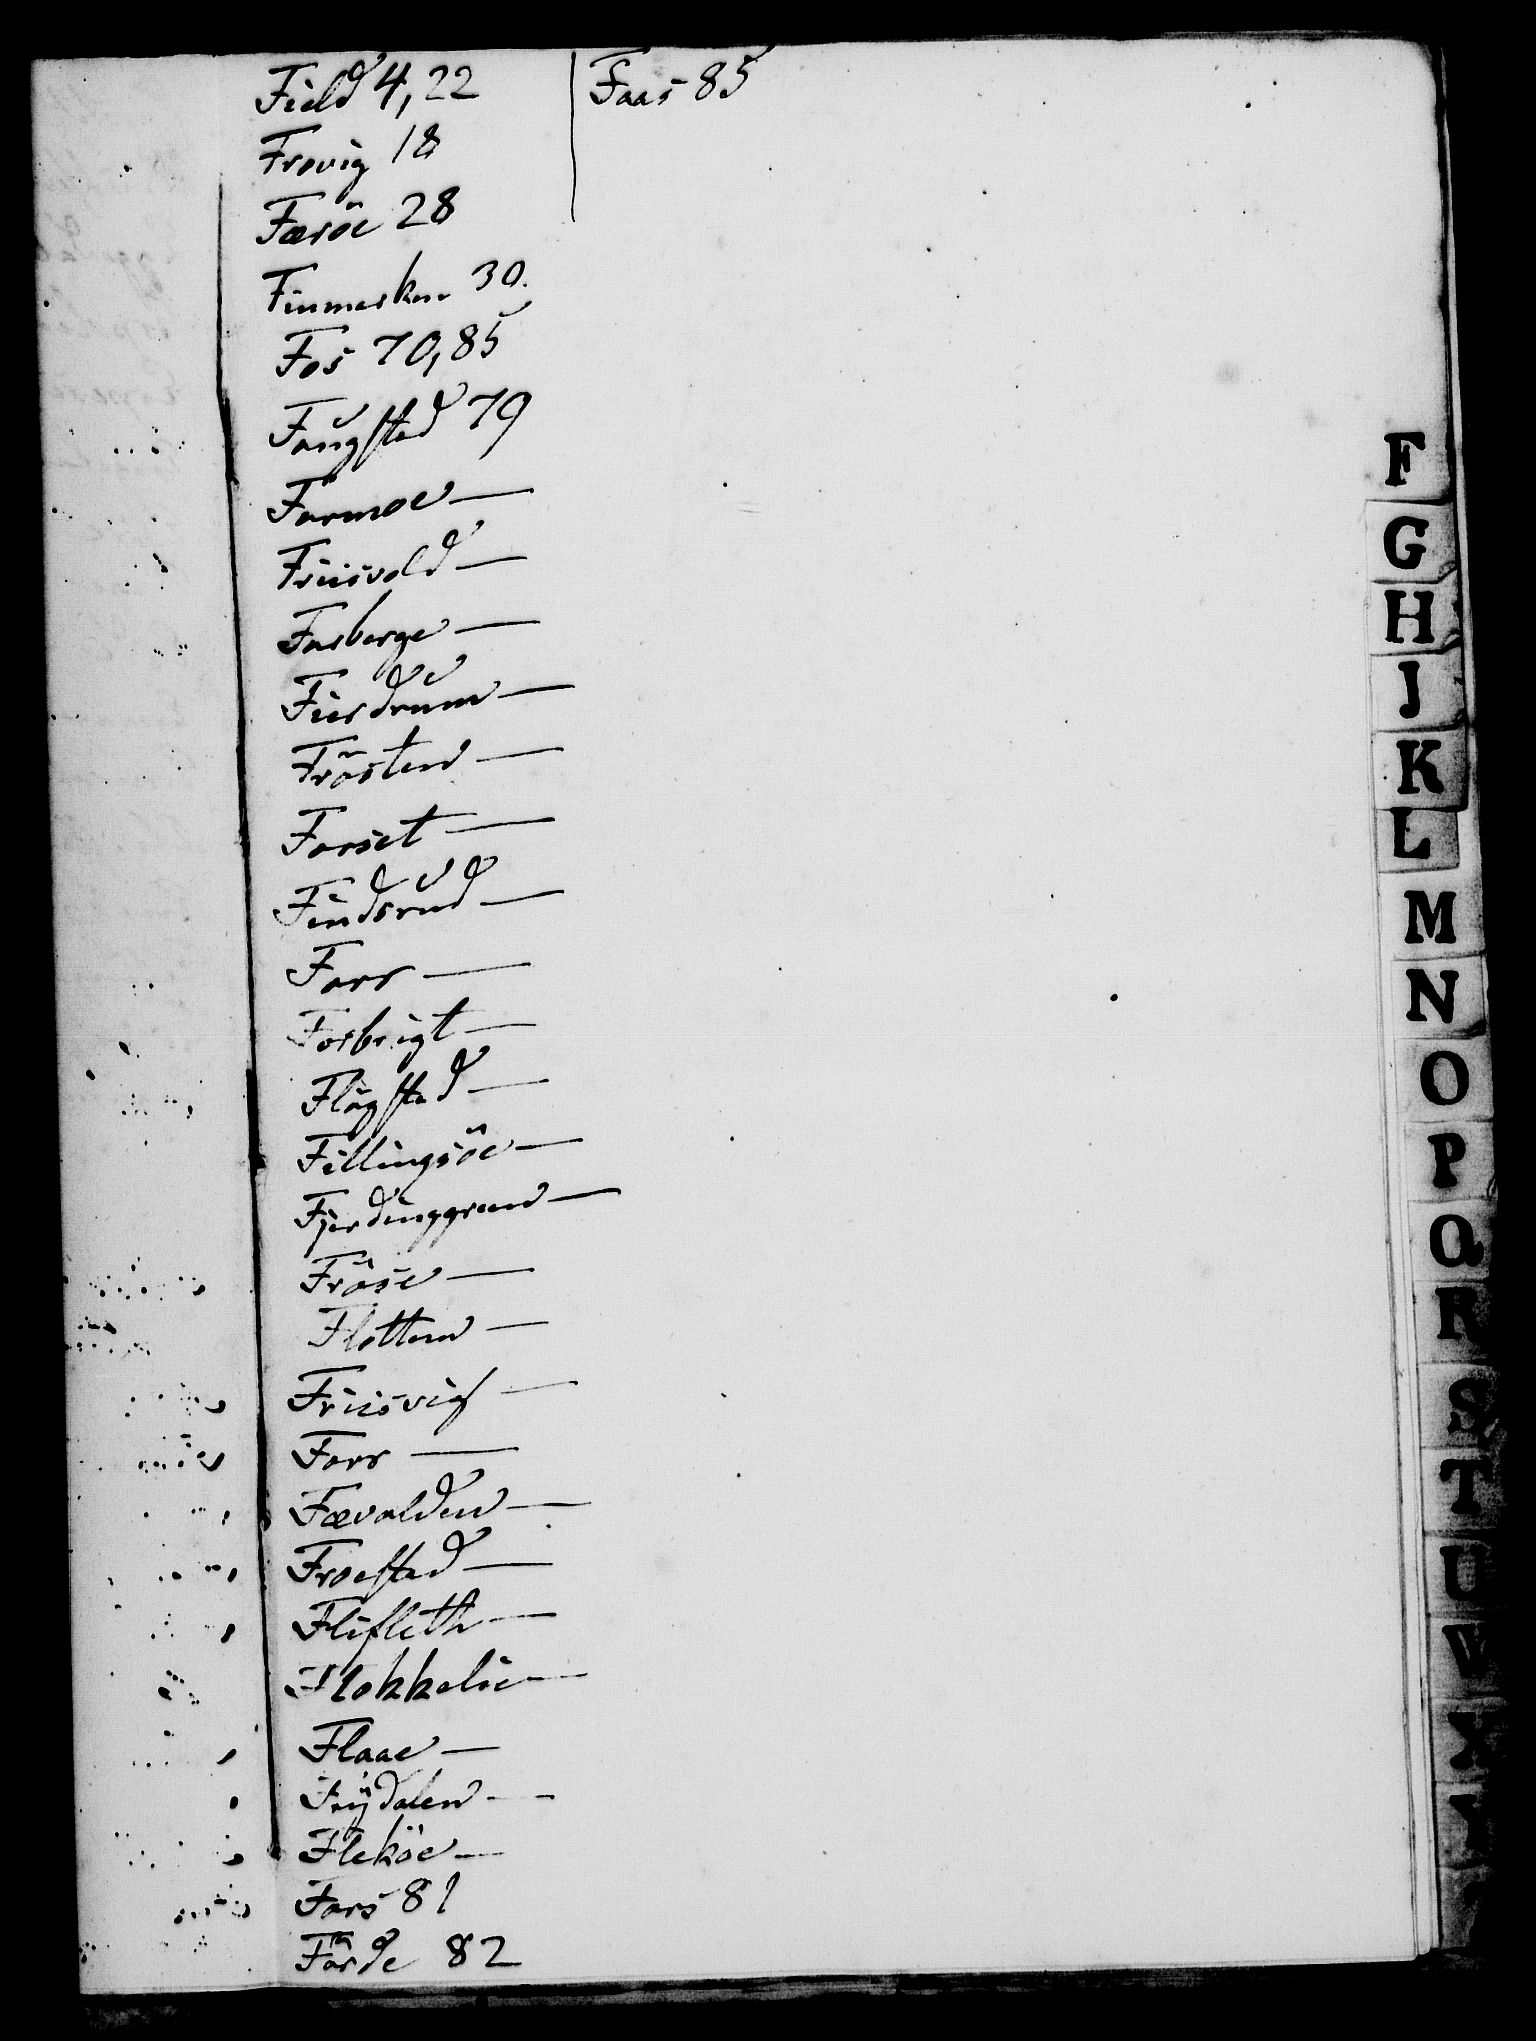 Field 4, 22
Frovig 18
Færöe 28
Finmarken 30.
Fos 70, 85
Faugstad 79
Formoe —
Friisvold —
Faaberge —
Fierdrum —
Frösten —
Forset —
Findsrud —
Forr —
Forbrigt —
Flögstad —
Fillingsöe —
Fjerdinggreen —
Fröse —
Flottem —
Friisvig —
Forr —
Fævolden —
Froestad —
Flifleth —
Flokkelie —
Flaae —
Frÿdalen —
Fleköe —
Fors 81
Förde 82
Faas 85
F
G
H
J
K
L
M
N
O
P
Q
R
S
T
U
V
X